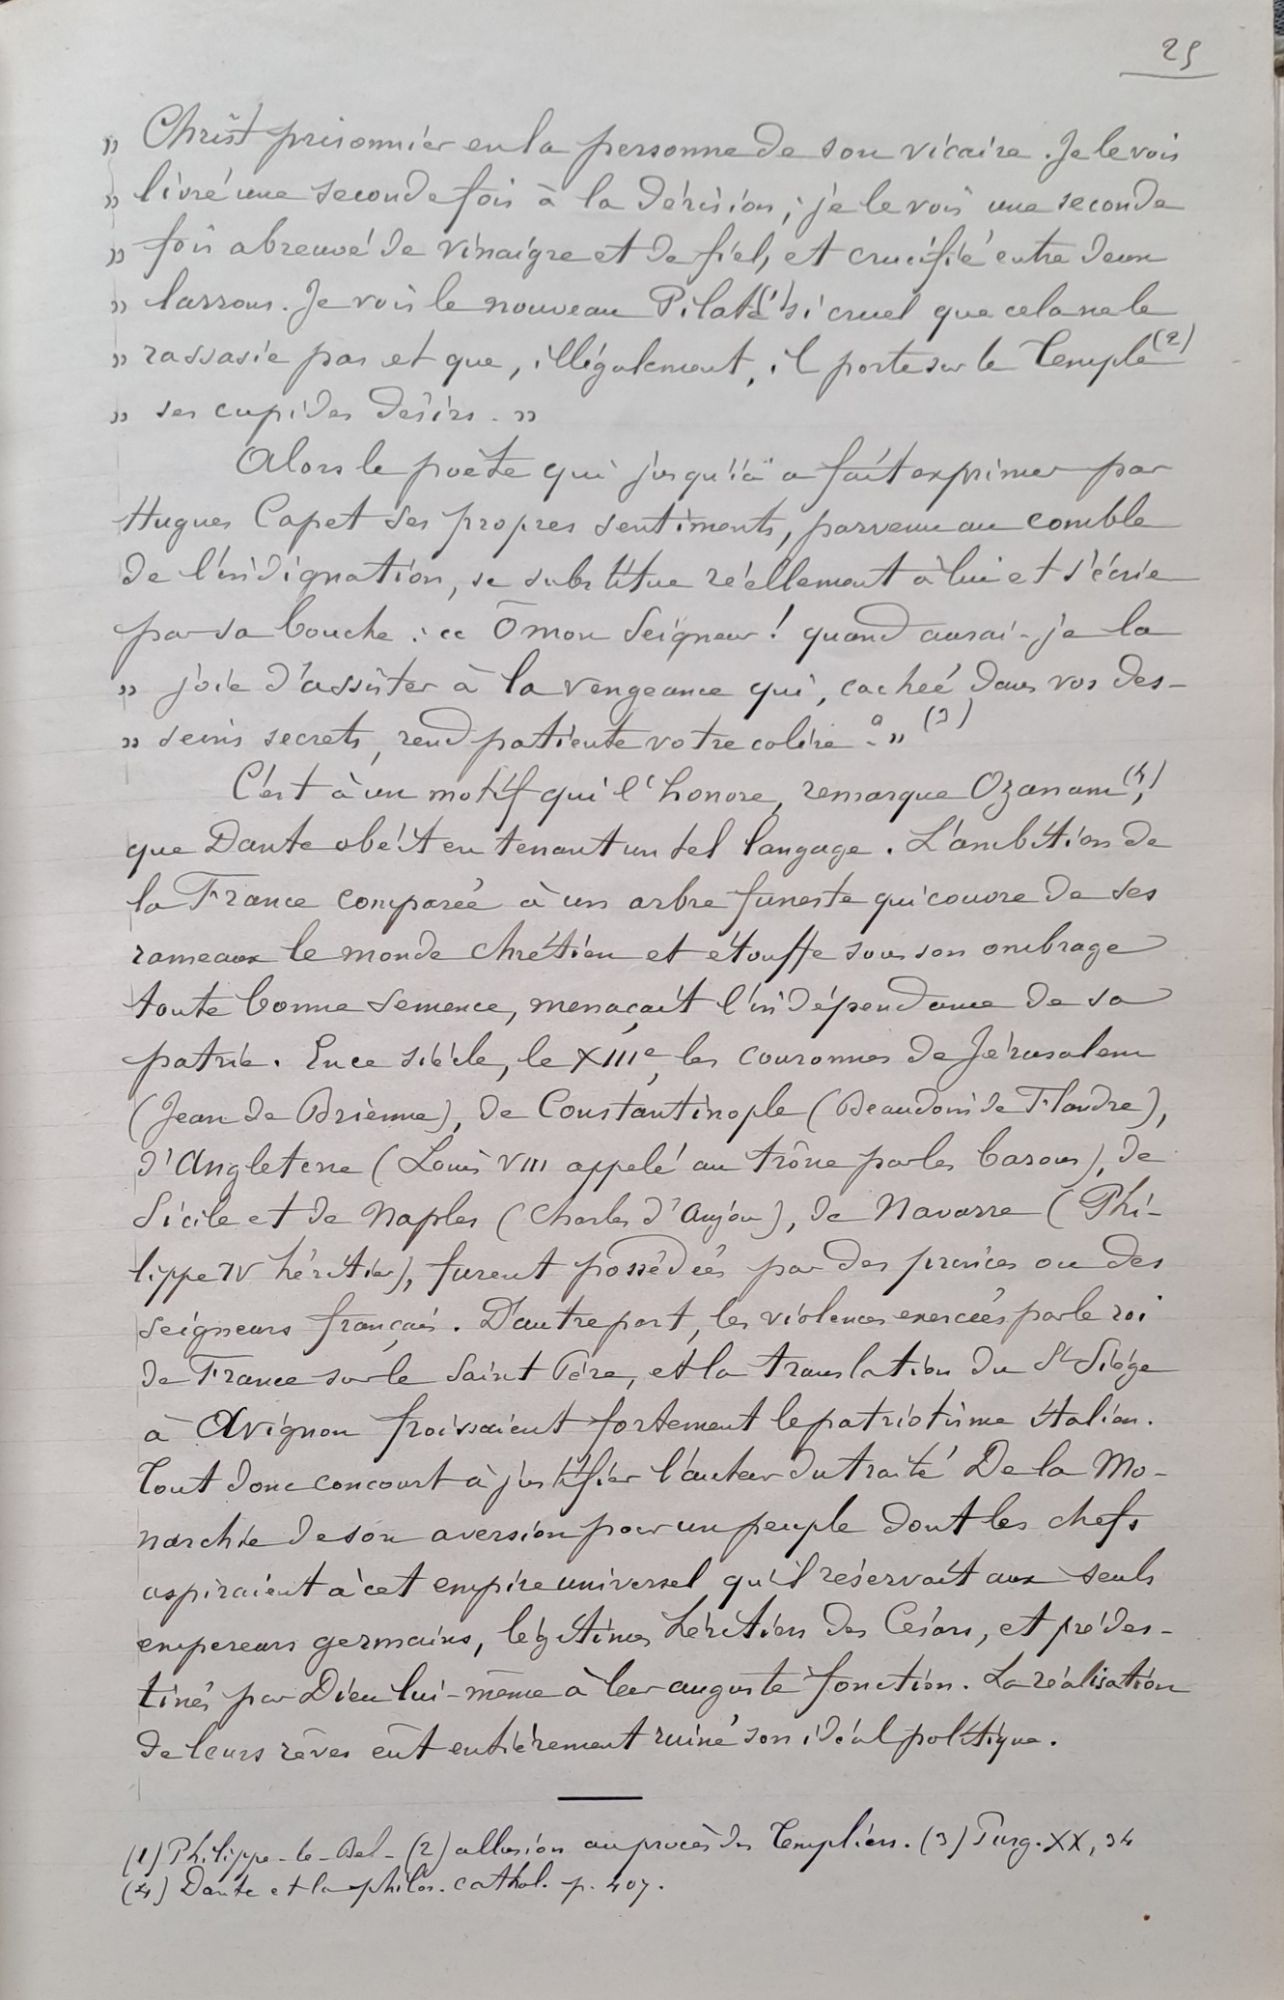 25
» Christ prisonnier en la personne de son vicaire. Je le vois
» livré une seconde fois à la dérision ; je le vois une seconde
» fois abreuvé de vinaigre et de fiel, et crucifié entre deux
» larrons. Je vois le nouveau Pilate (1) si cruel que cela ne le
» rassasie pas et que, illégalement, il porte sur le Temple (2)
» ses cupides désirs. »
Alors le poète qui jusqu'ià a fait exprimer par
Hugues Capet ses propres sentiments, parvenu au comble
de l'indignation, se substitue réellement à lui et s'écrie
par sa bouche : « Ô mon Seigneur ! quand aurai-je la
» joie d'assister à la vengeance qui, cachée dans vos des-
» seins secrets, rend patiente votre colère ? » (3)
C'est à un motif qui l'honore, remarque Ozanam (4),
que Dante obéit en tenant un tel langage. L'ambition de
la France comparée à un arbre funeste qui couvre de ses
rameaux le monde chrétien et étouffe sous son ombrage
toute bonne semence, menaçait l'indépendance de sa
patrie. En ce siècle, le XIIIe, les couronnes de Jérusalem
(Jean de Brienne), de Constantinople (Beaudoin de Flandre),
d'Angleterre (Louis VIII appelé au trône par les barons), de
Sicile et de Naples (Charles d'Anjou), de Navarre (Phi-
lippe IV héritier), furent possédées par des princes ou des
seigneurs français. D'autre part, les violences exercées par le roi
de France sur le Saint Père, et la translation du St Siège
à Avignon froissaient fortement le patriotisme italien.
Tout donc concourt à justifier l'auteur du traité De la Mo-
narchie de son aversion pour un peuple dont les chefs
aspiraient à cet empire universel qu'il réservait aux seuls
empereurs germains, légitimes héritiers des Césars, et prédes-
tinés par Dieu lui-même à leur auguste fonction. La réalisation
de leurs rêves eût entièrement ruiné son idéal politique.
(1) Philippe-le-Bel - (2) allusion au procès des Templiers. (3) Purg. XX, 34
(4) Dante et la philos. cathol. p. 407.